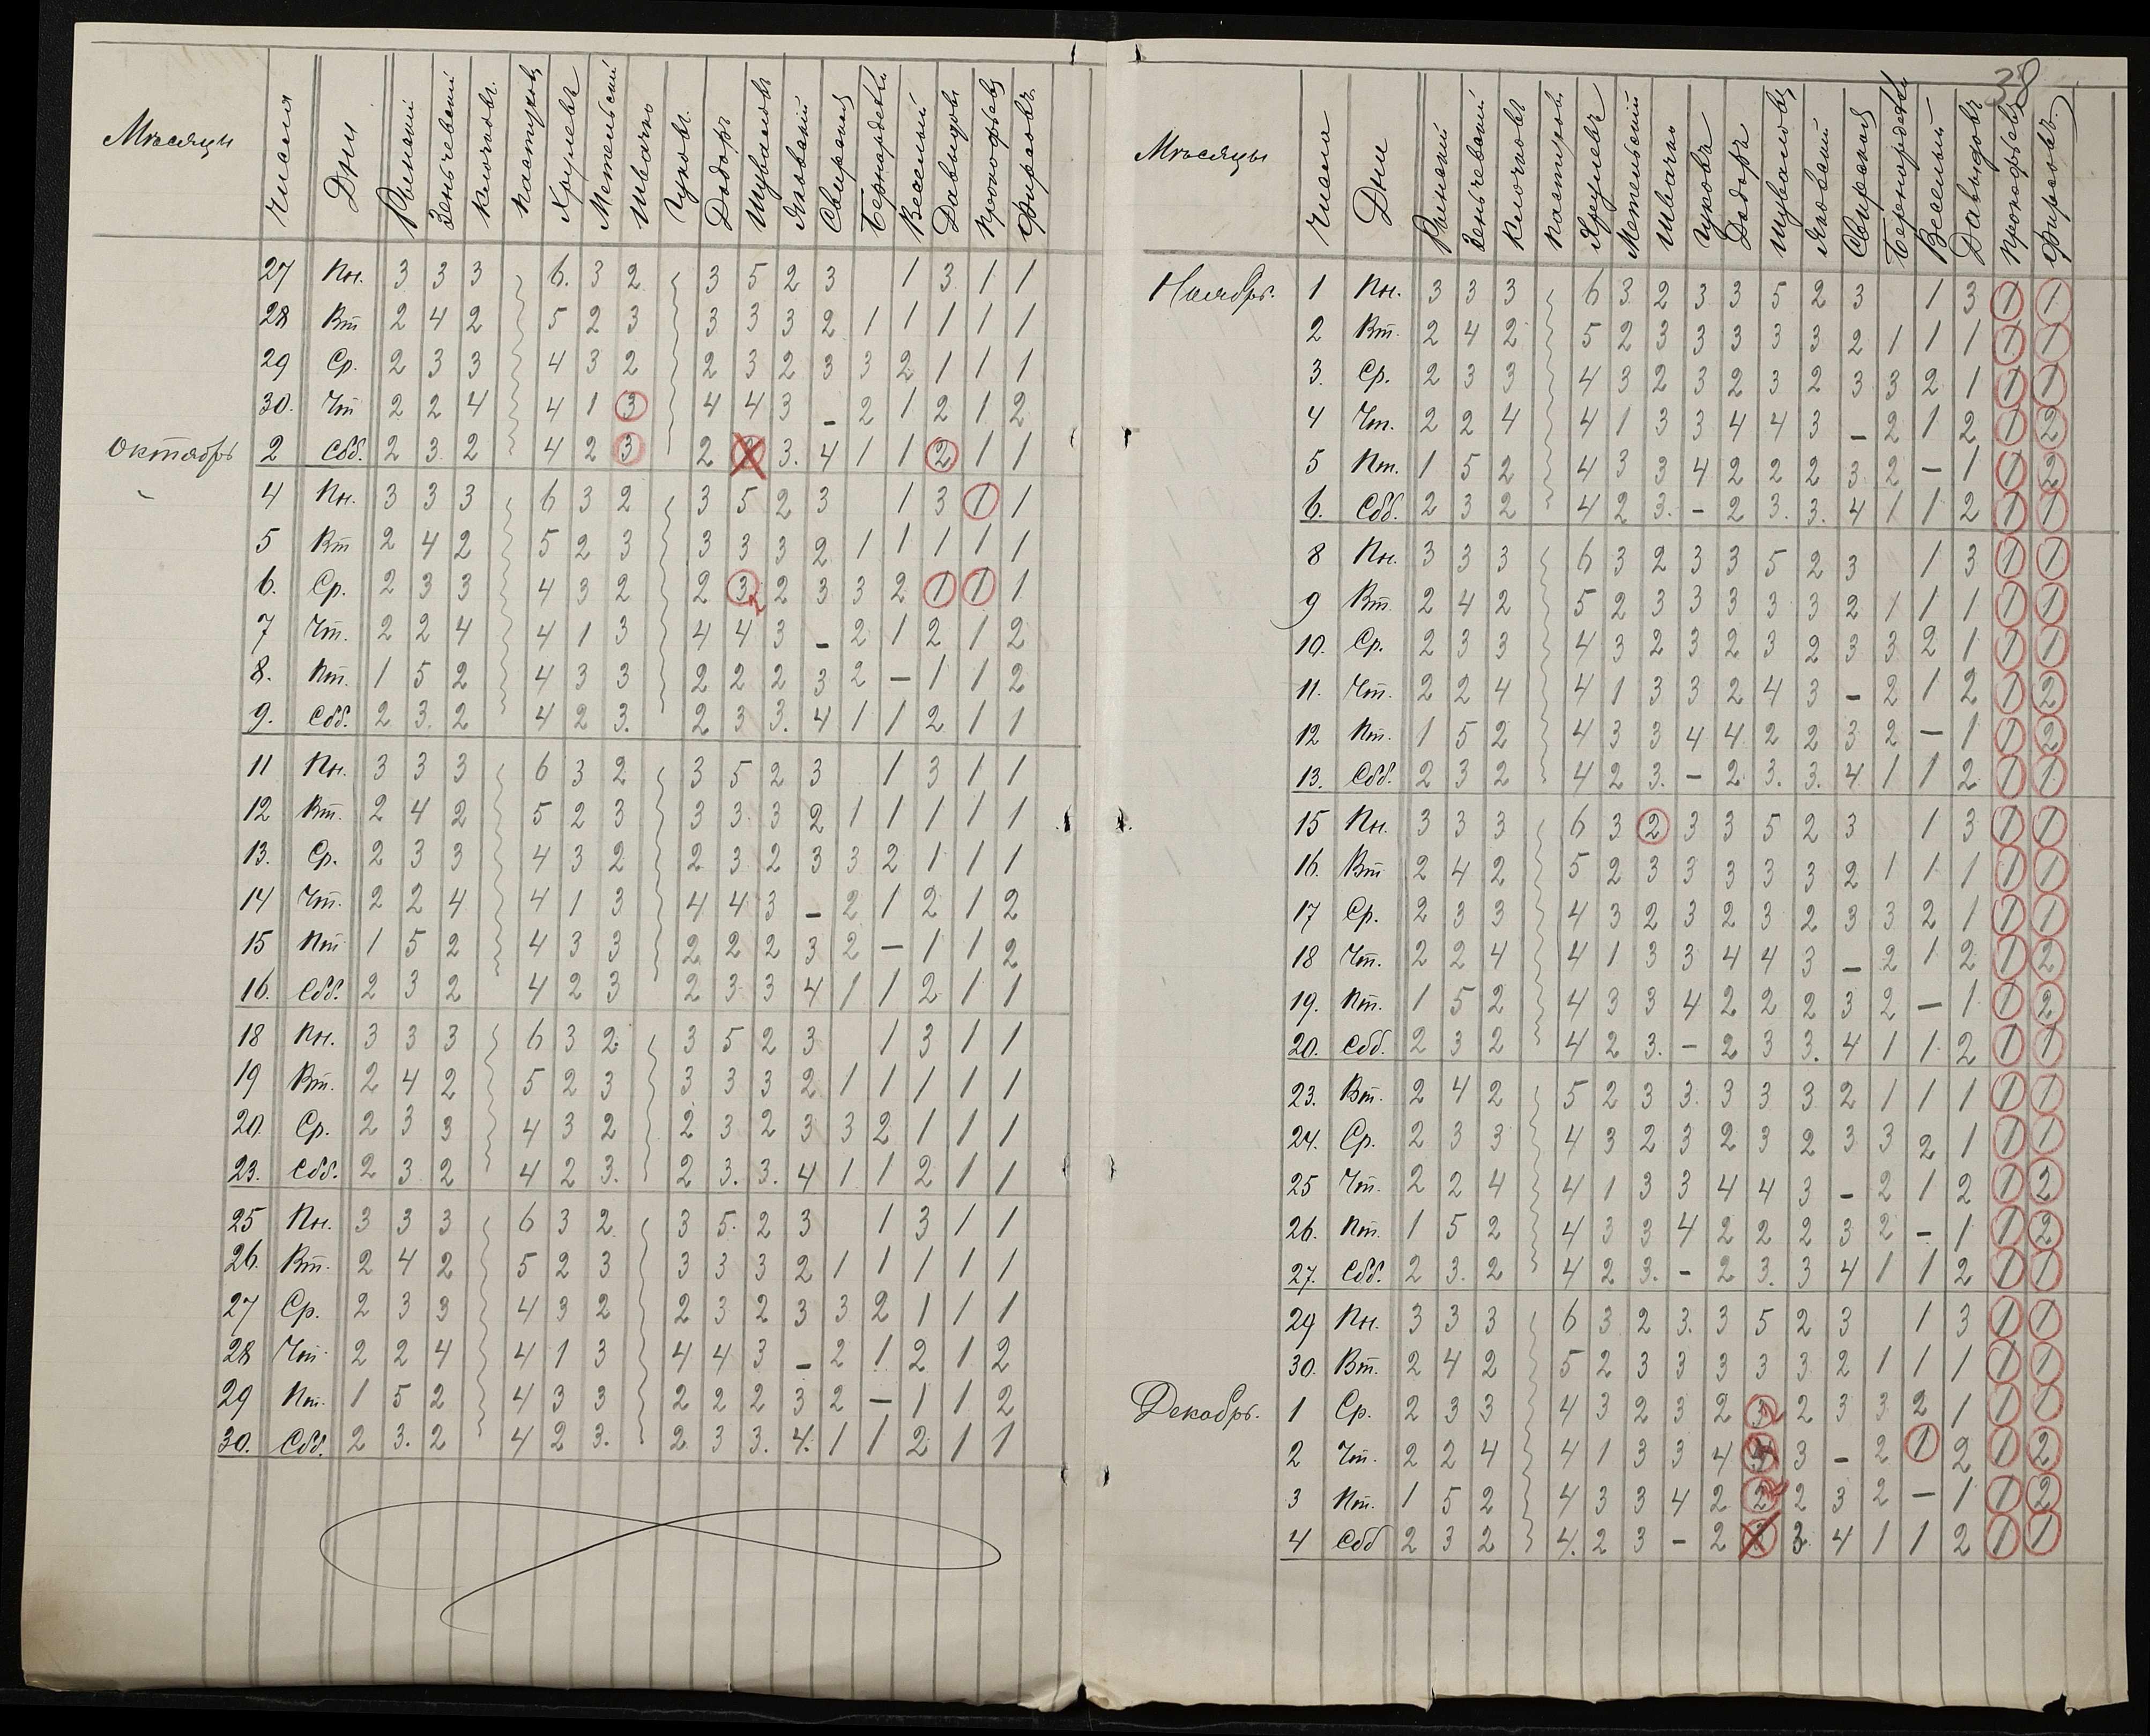 Мѣсяцы Числа Дни Рымскій Зеньчевскій Клочковъ Пастуховъ Хрулевъ Метельскій Швачко Гуковъ Дадоръ Шуваловъ Яновскій Свирскій Бернардели Веселый Давыдовъ Прокофьевъ Фирсовъ
27 Пн. 3 3 3 6. 3 2 3 5 2 3 1 3 1 1
28 Вт 2 4 2 5 2 3 3 3 3 2 1 1 1 1 1
29 Ср. 2 3 3 4 3 2 2 3 2 3 3 2 1 1 1
30. Чт 2 2 4 4 1 3 4 4 3 - 2 1 2 1 2
Октябрь 2 Сбб. 2 3 2 4 2 3 2 3. 4 1 1 2 1 1
4 Пн. 3 3 3 6 3 2 3 5 2 3 1 3 1 1
5 Вт 2 4 2 5 2 3 3 3 3 2 1 1 1 1 1
6. Ср. 2 3 3 4 3 2 2 3 2 2 3 3 2 1 1 1
7 Чт. 2 2 4 4 1 3 4 4 3 - 2 1 2 1 2
8. Пт. 1 5 2 4 3 3 2 2 2 3 2 - 1 1 2
9. Сбб. 2 3. 2 4 2 3. 2 3 3. 4 1 1 2 1 1
11 Пн. 3 3 3 6 3 2 3 5 2 3 1 3 1 1
12 Вт. 2 4 2 5 2 3 3 3. 3 2 1 1 1 1 1
13. Ср. 2 3 3 4 3 2 2 3 2 3 3 2 1 1 1
14 Чт. 2 2 4 4 1 3 4 4 3 - 2 1 2 1 2
15 Пт 1 5 2 4 3 3 2 2 2 3 2 - 1 1 2
16. Сбб. 2 3 2 4 2 3 2 3 3 4 1 1 2 1 1
18 Пн. 3 3 3 6 3 2 3 5 2 3 1 3 1 1
19 Вт. 2 4 2 5 2 3 3 3 3 2 1 1 1 1 1
20. Ср. 2 3 3 4 3 2 2 3 2 3 3 2 1 1 1
23. Сбб. 2 3 2 4 2 3. 2 3. 3. 4 1 1 2 1 1
25 Пн. 3 3 3 6 3 2 3 5. 2 3 1 3 1 1
26. Вт. 2 4 2 5 2 3 3 3 3 2 1 1 1 1 1
27 Ср. 2 3 3 4 3 2 2 3 2 3 3 2 1 1 1
28 Чт. 2 2 4 4 1 3 4 4 3 - 2 1 2 1 2
29 Пт. 1 5 2 4 3 3 2 2 2 3 2 - 1 1 2
30. Сбб. 2 3. 2 4 2 3. 2 3 3. 4. 1 1 2 1 1
38
Мѣсяцы Числа Дни Рымскій Зеньчевскій Клочковъ Пастуховъ Хрулевъ Метельскій Швачко Гуковъ Дадоръ Шуваловъ Яновскій Свирскій Бернардели Веселый Давыдовъ Прокофьевъ Фирсовъ
Ноябрь. 1 Пн. 3 3 3 6 3 2 3 3 5 2 3 1 3 1 1
2 Вт. 2 4 2 5 2 3 3 3 3 3 2 1 1 1 1 1
3. Ср. 2 3 3 4 3 2 3 2 3 2 3 3 2 1 1 1
4 Чт. 2 2 4 4 1 3 3 4 4 3 - 2 1 2 1 2
5 Пт. 1 5 2 4 3 3 4 2 2 2 3 2 - 1 1 2
6. Сбб. 2 3 2 4 2 3. - 2 3. 3. 4 1 1 2 1 1
8 Пн. 3 3 3 6 3 2 3 3 5 2 3 1 3 1 1
9 Вт. 2 4 2 5 2 3 3 3 3 3 2 1 1 1 1 1
10. Ср. 2 3 3 4 3 2 3 2 3 2 3 3 2 1 1 1
11. Чт. 2 2 4 4 1 3 3 2 4 3 - 2 1 2 1 2
12 Пт. 1 5 2 4 3 3 4 4 2 2 3 2 - 1 1 2
13. Сбб. 2 3 2 4 2 3. - 2 3. 3. 4 1 1 2 1 1
15 Пн. 3 3 3 6 3 2 3 3 5 2 3 1 3 1 1
16. Вт 2 4 2 5 2 3 3 3 3 3 2 1 1 1 1 1
17 Ср. 2 3 3 4 3 2 3 2 3 2 3 3 2 1 1 1
18 Чт. 2 2 4 4 1 3 3 4 4 3 - 2 1 2 1 2
19. Пт. 1 5 2 4 3 3 4 2 2 2 3 2 - 1 1 2
20. Сбб. 2 3 2 4 2 3. - 2 3 3. 4 1 1 2 1 1
23. Вт. 2 4 2 5 2 3 3. 3 3 3 2 1 1 1 1 1
24. Ср. 2 3 3 4 3 2 3 2 3 2 3 3 2 1 1 1
25 Чт. 2 2 4 4 1 3 3 4 4 3 - 2 1 2 1 2
26. Пт. 1 5 2 4 3 3 4 2 2 2 3 2 - 1 1 2
27. Сбб. 2 3. 2 4 2 3. - 2 3. 3 4 1 1 2 1 1
29 Пн. 3 3 3 6 3 2 3. 3 5 2 3 1 3 1 1
30. Вт. 2 4 2 5 2 3 3 3 3 3 2 1 1 1 1 1
Декабрь. 1 Ср. 2 3 3 4 3 2 3 2 3 2 3 3 2 1 1 1
2 Чт. 2 2 4 4 1 3 3 4 4 3 - 2 1 2 1 2
3 Пт. 1 5 2 4 3 3 4 2 2 2 3 2 - 1 1 2
4 Сбб 2 3 2 4. 2 3 - 2 3 3. 4 1 1 2 1 1